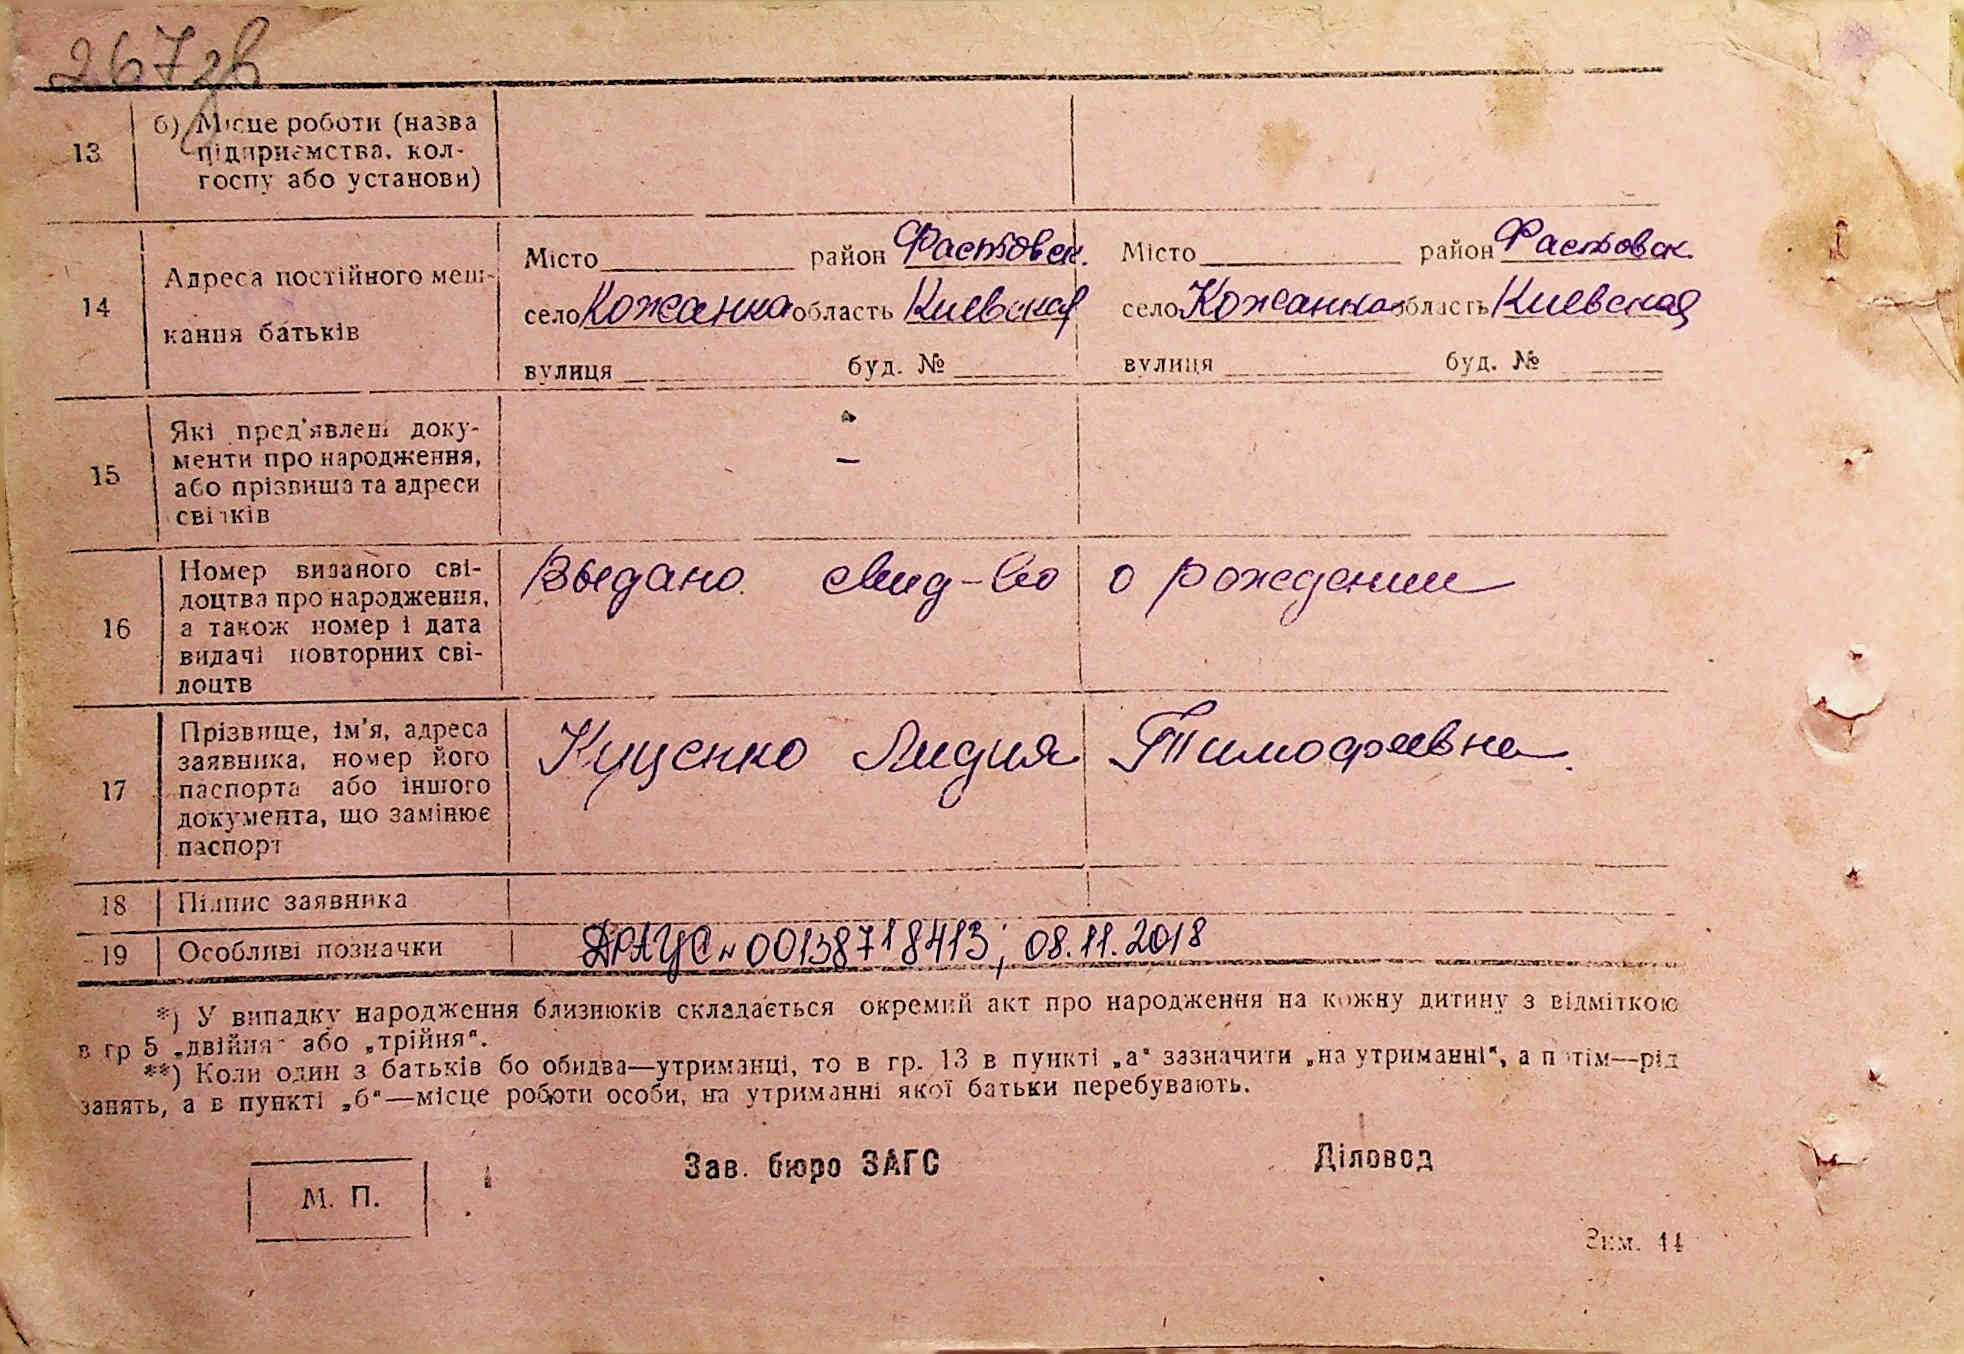 267зв
13
б) Місце роботи (назва
підприємства, кол-
госпу або установи)
14
Адреса постійного меш-
кання батьків
Місто район Фастовск.
село Кожанка область Киевская
вулиця буд. №
Місто район Фастовск.
село Кожанка область Киевская
вулиця буд. №
15
Які пред'явлені доку-
менти про народження,
або прізвища та адреси
свідків
–
16
Номер виданого сві-
доцтва про народження,
а також номер і дата
видачі повторних сві-
доцтв
Выдано свид-во о рождении
17
Прізвище, ім'я, адреса
заявника, номер його
паспорта або іншого
документа, що замінює
паспорт
Куценко Лидия Тимофеевна.
18
Підпис заявника
19
Особливі позначки
ДРАЦС № 00138718413; 08.11.2018
*) У випадку народження близнюків складається окремий акт про народження на кожну дитину з відміткою
в гр 5 „двійня“ або „трійня“.
**) Коли один з батьків бо обидва—утриманці, то в гр. 13 в пункті „а“ зазначити „на утриманні“, а потім—рід
занять, а в пункті „б“—місце роботи особи, на утриманні якої батьки перебувають.
М. П.
Зав. бюро ЗАГС
Діловод
Зам. 44